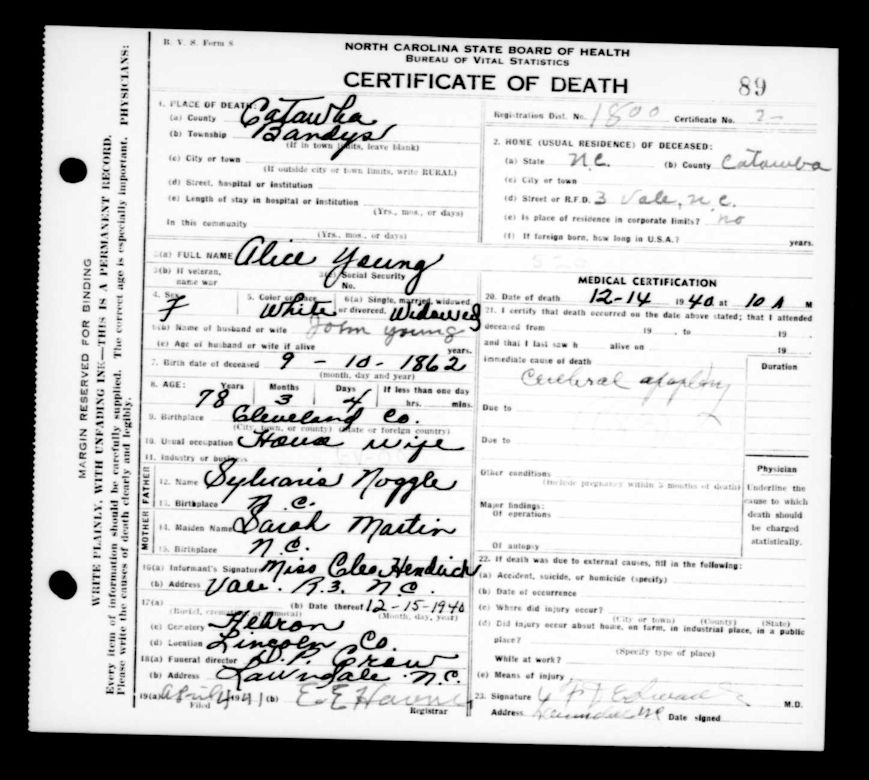 B. V. S. Form 8
NORTH CAROLINA STATE BOARD OF HEALTH
BUREAU OF VITAL STATISTICS
CERTIFICATE OF DEATH
89
MARGIN RESERVED FOR BINDING
WRITE PLAINLY, WITH UNFADING INK—THIS IS A PERMANENT RECORD.
Every item of information should be carefully supplied. The correct age is especially important. PHYSICIANS:
Please write the causes of death clearly and legibly.
1. PLACE OF DEATH:
(a) County Catawba
(b) Township Bandys
(If in town limits, leave blank)
(c) City or town
(If outside city or town limits, write RURAL)
(d) Street, hospital or institution
(e) Length of stay in hospital or institution
(Yrs., mos., or days)
In this community
(Yrs., mos., or days)
Registration Dist. No. 1800 Certificate No. 2-
2. HOME (USUAL RESIDENCE) OF DECEASED:
(a) State N.C. (b) County Catawba
(c) City or town
(d) Street or R.F.D. 3 Vale, N.C.
(e) Is place of residence in corporate limits? no
(f) If foreign born, how long in U.S.A.? years.
3(a) FULL NAME Alice Young
3(b) If veteran, name war 3(c) Social Security No.
4. Sex F 5. Color or race White 6(a) Single, married, widowed or divorced. Widowed
6(b) Name of husband or wife John Young
(c) Age of husband or wife if alive years.
7. Birth date of deceased 9 - 10 - 1862
(month, day and year)
8. AGE: Years 78 Months 3 Days 4 If less than one day hrs. mins.
9. Birthplace Cleveland Co.
(City, town, or county) (State or foreign country)
10. Usual occupation House wife
11. Industry or business
FATHER
12. Name Sylvanis Noggle
13. Birthplace N.C.
MOTHER
14. Maiden Name Sarah Martin
15. Birthplace N.C.
16(a) Informant's Signature Miss Cleo Hendrick
(b) Address Vale. R.3. N.C.
17(a) (Burial, cremation or removal) (b) Date thereof 12-15-1940
(Month, day, year)
(c) Cemetery Hebron
(d) Location Lincoln Co.
18(a) Funeral director D. P. Crow
(b) Address Lawndale N.C.
19(a) April 4 1941 (b) E. E. 
Filed Registrar
MEDICAL CERTIFICATION
20. Date of death 12-14 1940 at 10 A M
21. I certify that death occurred on the date above stated; that I attended
deceased from 19 , to 19
and that I last saw h alive on 19
immediate cause of death Duration
Cerebral apoplexy
Due to
Due to
Other conditions
(include pregnancy within 3 months of death)
Major findings:
Of operations
Of autopsy
Physician
Underline the cause to which death should be charged statistically.
22. If death was due to external causes, fill in the following:
(a) Accident, suicide, or homicide (specify)
(b) Date of occurrence
(c) Where did injury occur?
(City or town) (County) (State)
(d) Did injury occur about home, on farm, in industrial place, in a public
place?
(Specify type of place)
While at work?
(e) Means of injury
23. Signature F Edwards M.D.
Address Lawndale NC Date signed